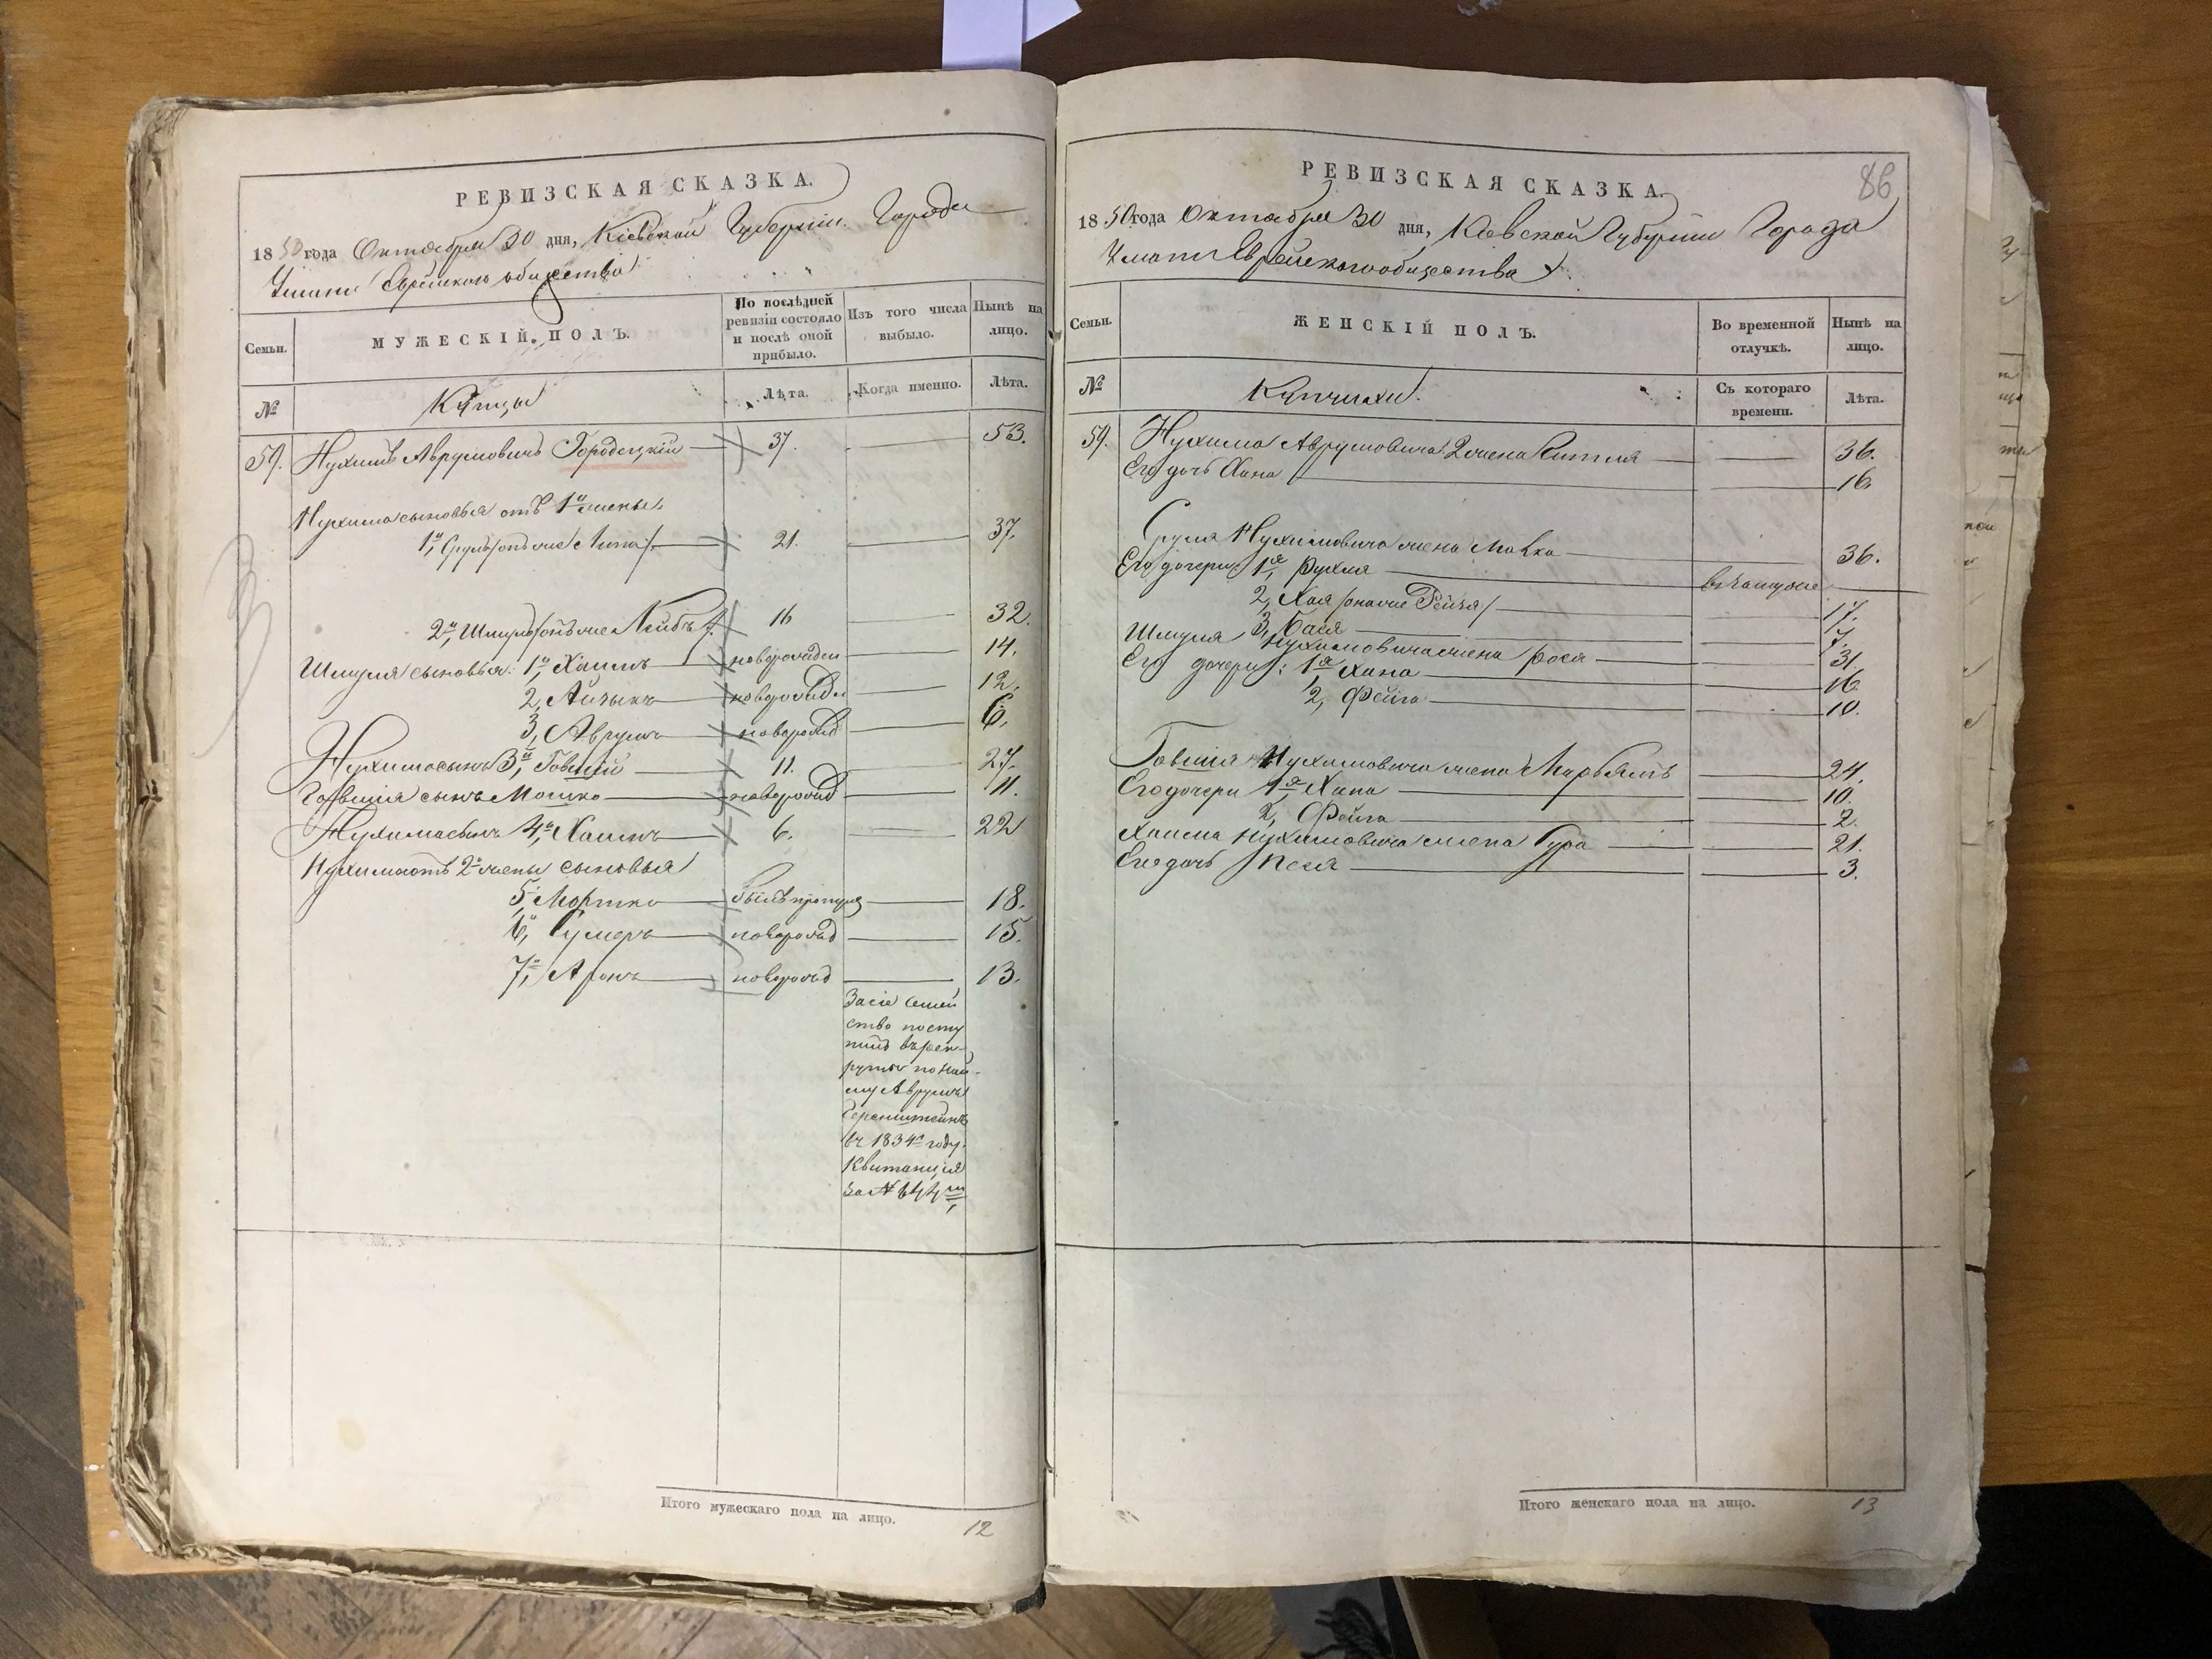 РЕВИЗСКАЯ СКАЗКА.
1850 года Октября 30 дня, Кіевской Губерніи Города
Умани Еврейскаго общества
Семьи. МУЖЕСКІЙ ПОЛЪ. По послѣдней ревизіи состояло и послѣ оной прибыло. Изъ того числа выбыло. Нынѣ на лицо.
№ Купцы Лѣта. Когда именно. Лѣта.
59. Нухимъ Аврумовичъ Городецкій 37. 53.
Нухима сыновья отъ 1й жены
1й, Сруль /онъ же Липа/ 21. 37.
2й, Шмуль /онъ же Лейбъ/ 16 32.
Шмуля сыновья: 1й, Хаимъ новорожден 14.
2, Айзыкъ новорожде 12.
3, Аврумъ новорожд 6.
Нухима сынъ 3й, Говшій 11. 27.
Говшія сынъ Мошко новорожд 11.
Нухима сынъ 4й, Хаимъ 6. 22
Нухима отъ 2й жены сыновья
5, Мортко былъ пропущ 18.
6й, Сумеръ новорожд 15.
7й, Аронъ новорожд 13.
За сіе семей
ство посту
пилъ въ рек-
руты по най-
му Аврумъ
Беренштейнъ
въ 1834м году.
Квитанція
за №
Итого мужескаго пола на лицо. 12
86
РЕВИЗСКАЯ СКАЗКА.
1850 года Октября 30 дня, Кіевской Губерніи Города
Умани Еврейскаго общества
Семьи. ЖЕНСКІЙ ПОЛЪ. Во временной отлучкѣ. Нынѣ на лицо.
№ Купчихи. Съ котораго времени. Лѣта.
59. Нухима Аврумовича 2 жена Ентля 36.
Его дочь Хана 16.
Сруля Нухимовича жена Малка 36.
Его дочери: 1я, Рухля въ замужс
2, Хая /она же Рейзя/ 17.
3, Бася 7.
Шмуля Нухимовича жена Рося 31.
Его дочери: 1я Хана 16.
2, Фейга 10.
Говшія Нухимовича жена Марьямъ 24.
Его дочери 1я Хана 10.
2, Фейга 2.
Хаима Нухимовича жена Сура 21.
Его дочь Песя 3.
Итого женскаго пола на лицо. 13